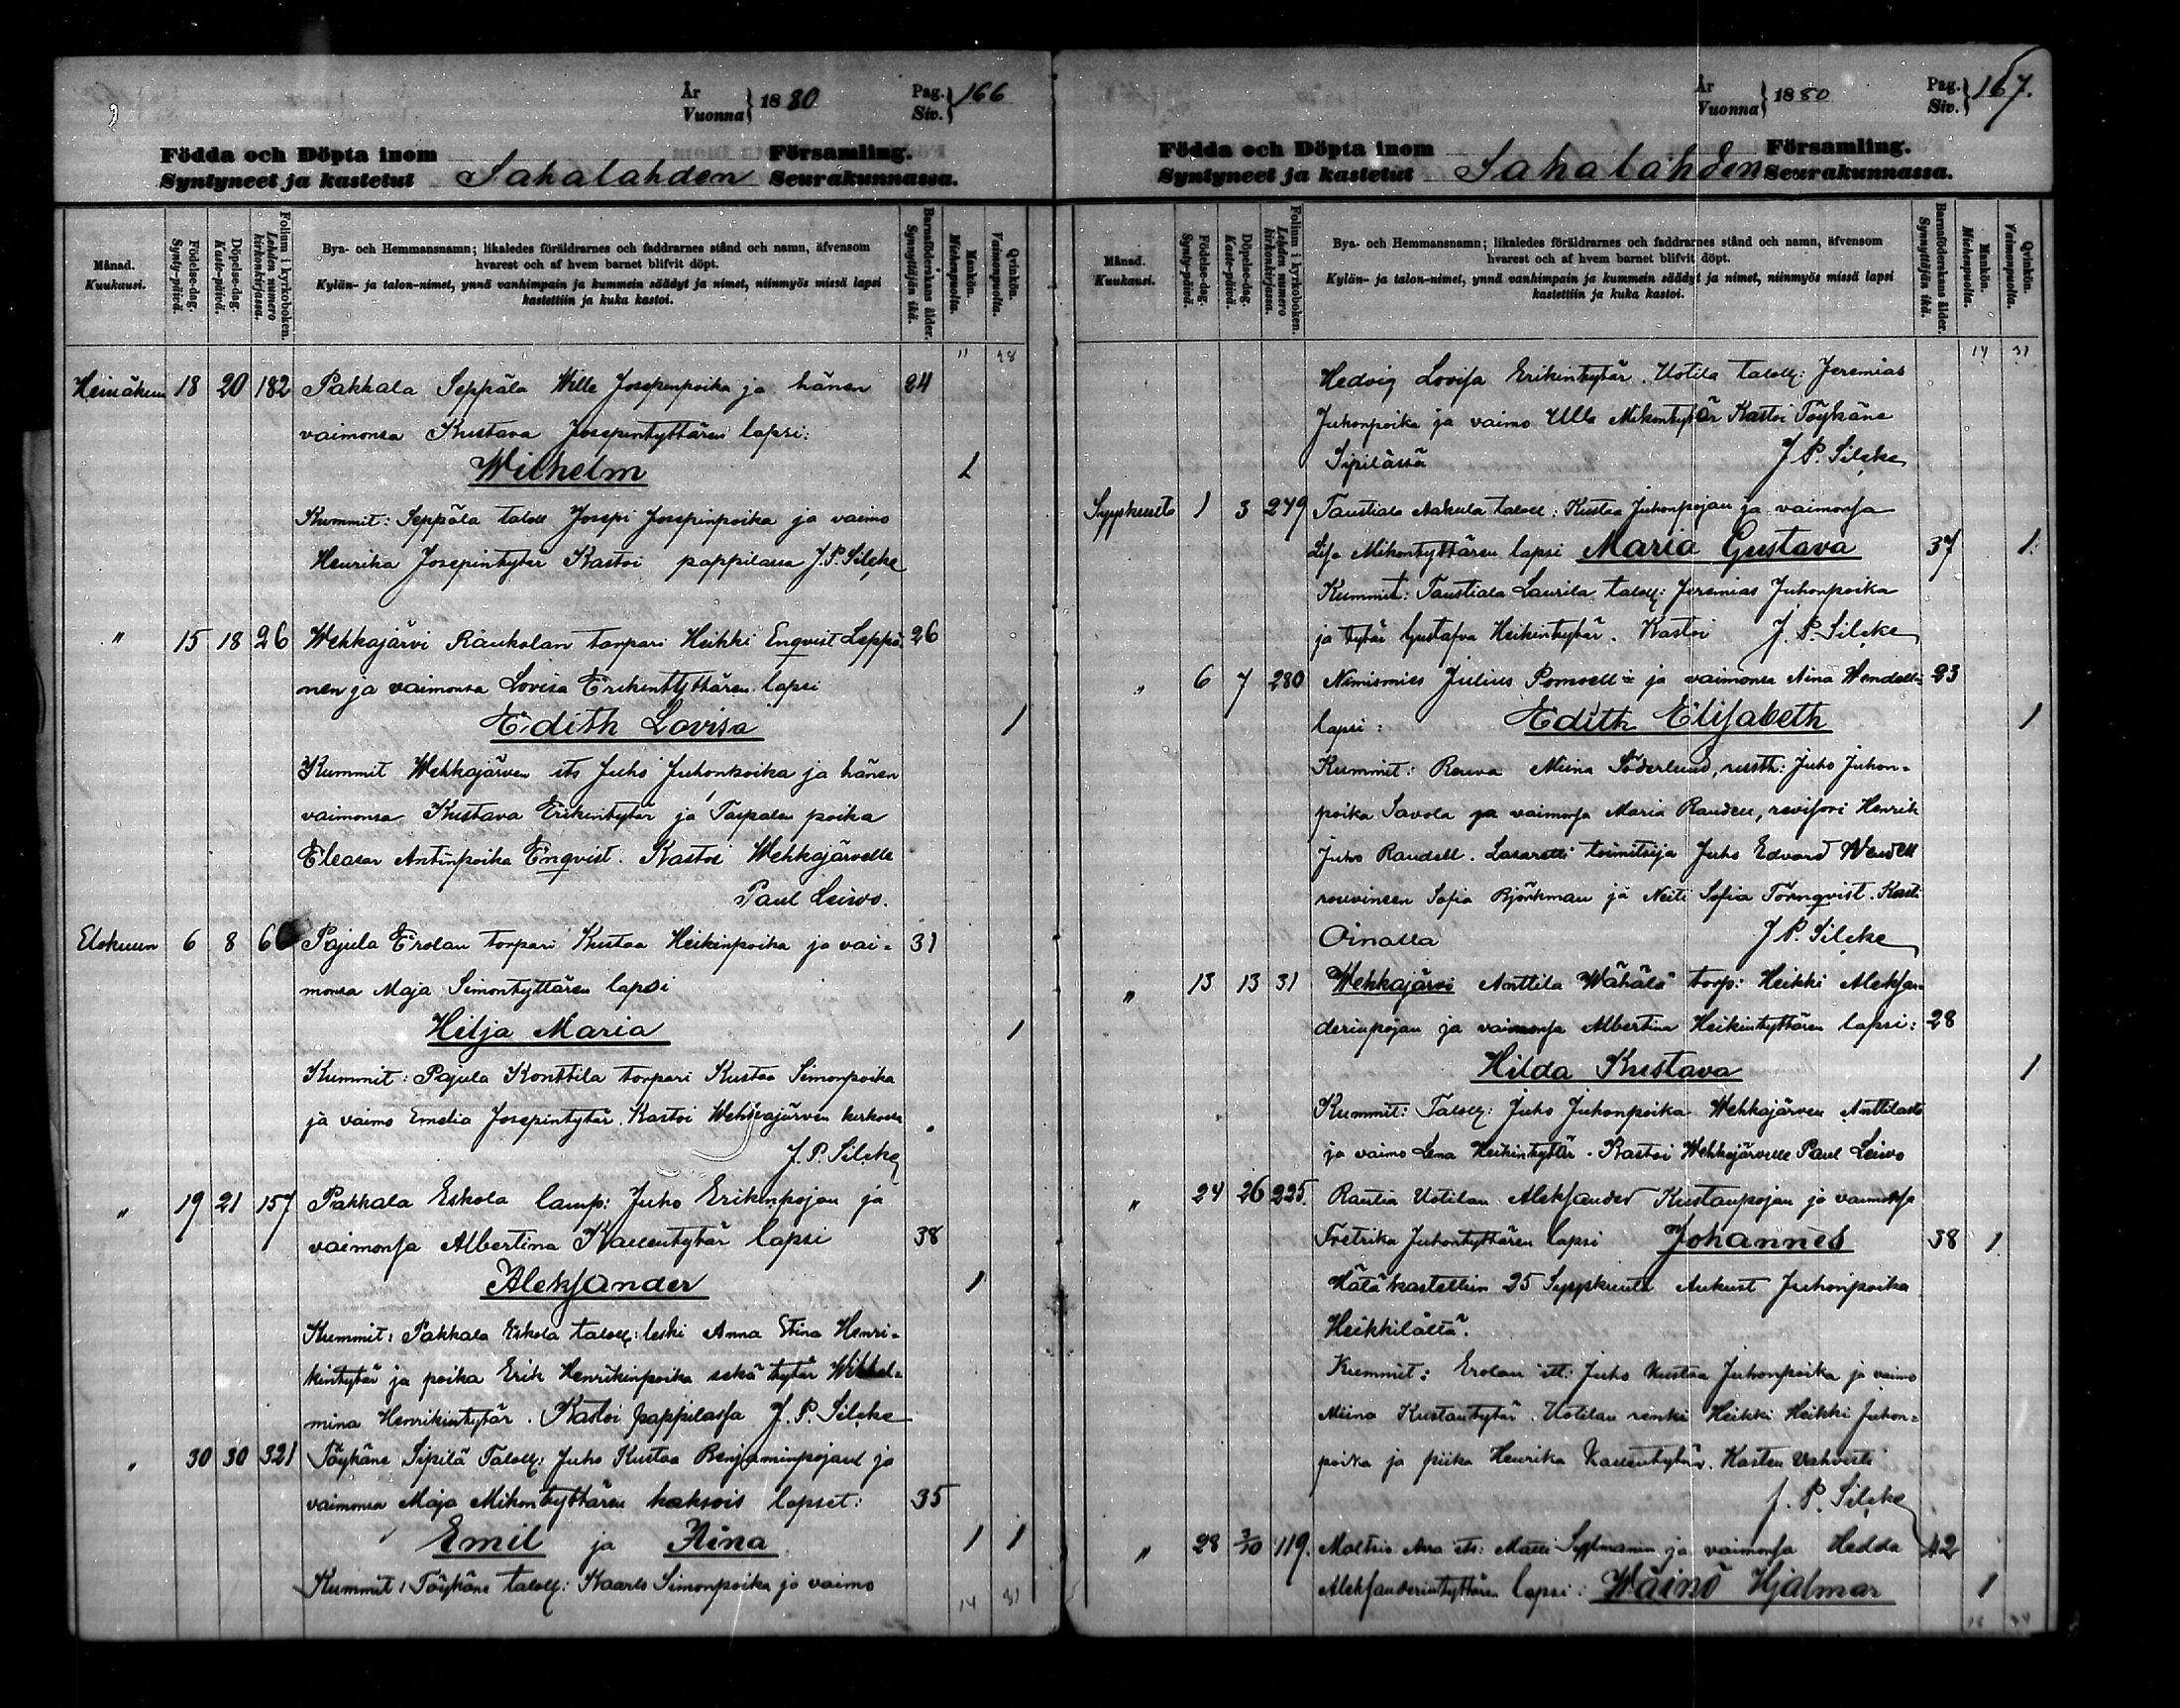 År
Vuonna } 1880 Pag.
Siv. } 166
Födda och Döpta inom Församling.
Syntyneet ja kastetut Sahalahden Seurakunnassa.
Månad.
Kuukausi.
Födelse-dag.
Synty-päivä.
Döpelse-dag.
Kaste-päivä.
Folium i kyrkoboken.
Lehden numero kirkonkirjassa.
Bya- och Hemmansnamn; likaledes föräldrarnes och faddrarnes stånd och namn, äfvensom
hvarest och af hvem barnet blifvit döpt.
Kylän- ja talon-nimet, ynnä vanhimpain ja kummein säädyt ja nimet, niinmyös missä lapsi
kastettiin ja kuka kastoi.
Barnaföderskans ålder.
Synnyttäjän ikä.
Mankön.
Miehenpuolta.
Qvinkön.
Vaimonpuolta.
11 28
Heinäkuu 18 20 182 Pakkala Seppäla Wille Josepinpoika ja hänen 24
vaimonsa Kustava Josepintyttären lapsi:
Wilhelm 1
Kummit: Seppäla taloll Josepi Josepinpoika ja vaimo
Henrika Josepintytär Kastoi pappilassa J. P. Silcke
" 15 18 26 Wehkajärvi Raukolan torpari Heikki Enqvist Leppä- 26
nen ja vaimonsa Lovisa Erikintyttären lapsi
Edith Lovisa 1
Kummit Wehkajärven its Juho Juhonpoika ja hänen
vaimonsa Kustava Erikintytär ja Taipalen poika
Eleasar Antinpoika Enqvist. Kastoi Wehkajärvelle
Paul Leivo.
Elokuun 6 8 66 Pajula Erolan torpari Kustaa Heikinpoika ja vai- 31
monsa Maja Simontyttären lapsi
Hilja Maria 1
Kummit: Pajula Konttila torpari Kustaa Simonpoika
ja vaimo Emelia Josepintytär. Kastoi Wehkajärven kirkossa
J. P. Silcke
" 19 21 157 Pakkala Eskola lamp: Juho Erikinpojan ja
vaimonsa Albertina Kallentytär lapsi 38
Aleksander 1
Kummit: Pakkala Eskola taloll: leski Anna Stina Henri-
kintytär ja poika Erik Henrikinpoika sekä tytär Wilhel-
mina Henrikintytär. Kastoi pappilassa J. P. Silcke
" 30 30 321 Töykäne Sipilä Taloll: Juho Kustaa Benjaminpojan ja
vaimonsa Maja Mikontyttären kaksois lapset: 35
Emil ja Fiina 1 1
Kummit: Töykäne taloll: Kaarlo Simonpoika ja vaimo
14 31
År
Vuonna } 1880 Pag.
Siv. } 167.
Födda och Döpta inom Församling.
Syntyneet ja kastetut Sahalahden Seurakunnassa.
Månad.
Kuukausi.
Födelse-dag.
Synty-päivä.
Döpelse-dag.
Kaste-päivä.
Folium i kyrkoboken.
Lehden numero kirkonkirjassa.
Bya- och Hemmansnamn; likaledes föräldrarnes och faddrarnes stånd och namn, äfvensom
hvarest och af hvem barnet blifvit döpt.
Kylän- ja talon-nimet, ynnä vanhimpain ja kummein säädyt ja nimet, niinmyös missä lapsi
kastettiin ja kuka kastoi.
Barnaföderskans ålder.
Synnyttäjän ikä.
Mankön.
Miehenpuolta.
Qvinkön.
Vaimonpuolta.
14 31
Hedvig Lovisa Erikintytär. Uotila taloll: Jeremias
Juhonpoika ja vaimo Ulla Mikontytär Kastoi Töykäne
Sipilässä J. P. Silcke
Syyskuuta 1 3 249 Taustiala Aakula taloll: Kustaa Juhonpojan ja vaimonsa
Lisa Mikontyttären lapsi Maria Gustava 37 1
Kummit: Taustiala Laurila taloll: Jeremias Juhonpoika
ja tytär Gustafva Heikintytär. Kastoi J. P. Silcke
" 6 7 280 Nimismies Julius Pomoell ja vaimonsa Aina Wendell 23
lapsi: Edith Elisabeth 1
Kummit: Rouva Miina Söderlund, rusth: Juho Juhon-
poika Savola ja vaimonsa Maria Randell, revisori Henrik
Juho Randell. Lasaretti toimitsija Juho Edvard Wendell
rouvineen Sofia Björkman ja Neiti Sofia Törnqvist. Kasti
Oinalla J. P. Silcke
" 13 13 31 Wehkajärvi Anttila Wähälä torp: Heikki Aleksan-
derinpojan ja vaimonsa Albertina Heikintyttären lapsi: 28
Hilda Kustava 1
Kummit: Taloll: Juho Juhonpoika Wehkajärven Anttilasta
ja vaimo Lena Heikintytär. Kastoi Wehkajärvelle Paul Leivo
" 24 26 225. Rautia Uotilan Aleksander Kustaanpojan ja vaimonsa
Fretrika Juhontyttären lapsi Johannes 38 1
Hätäkastettiin 25 Syyskuuta Aukust Juhonpoika
Heikkilältä.
Kummit: Erolan itl: Juho Kustaa Juhonpoika ja vaimo
Miina Kustantytär. Uotilan renki Heikki Heikki Juhon-
poika ja piika Henrika Kallentytär. Kasten Vahvisti
J. P. Silcke
" 28 3/10 119. Moltsia its: Matti ja vaimonsa Hedda 42
Aleksanderintyttären lapsi: Wäinö Hjalmar 1